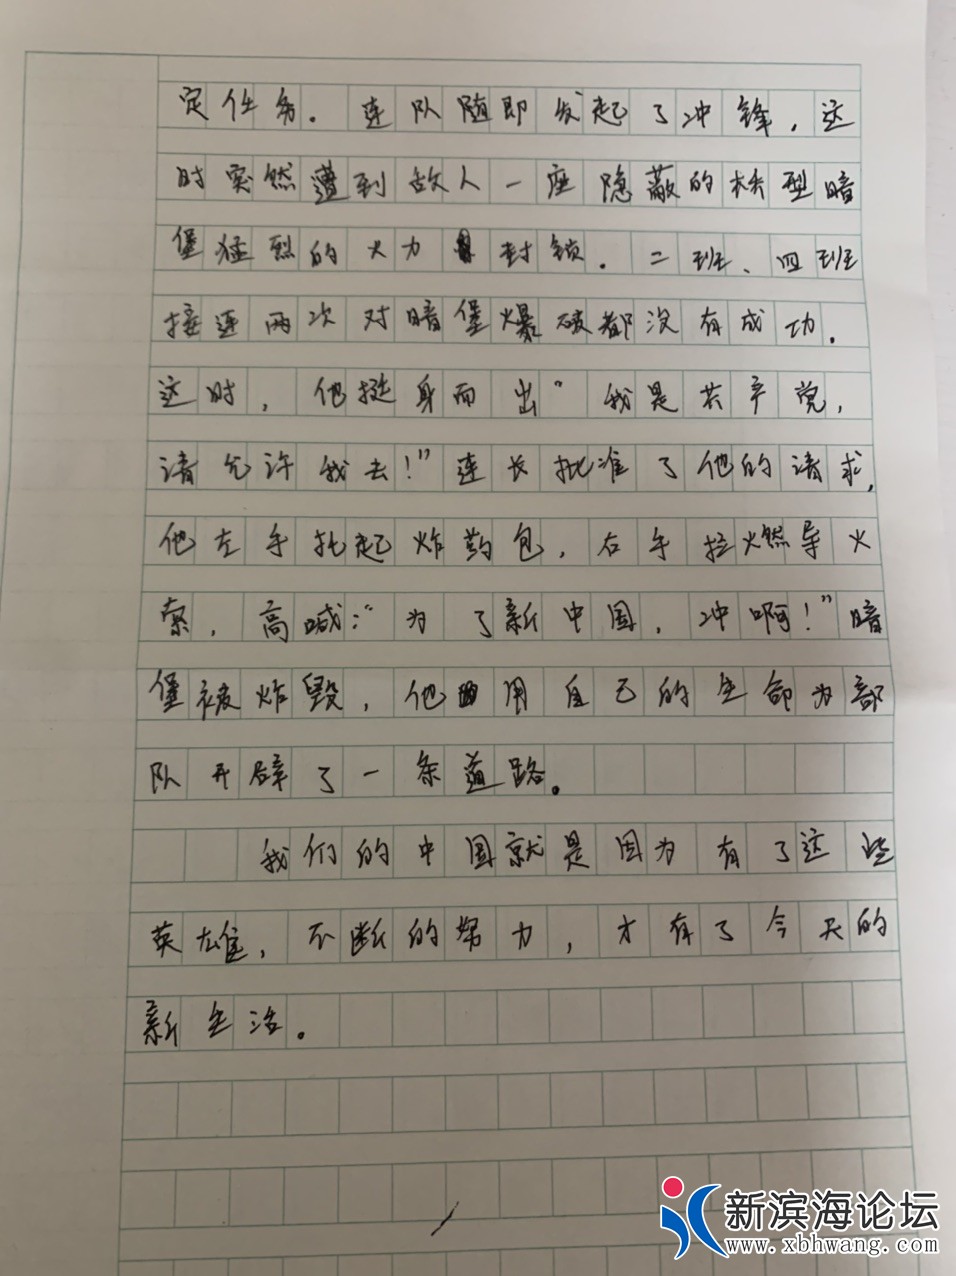 定任务。连队随即发起了冲锋,这
时突然遭到敌人一座隐蔽的桥型暗
堡猛烈的火力封锁。二班、四班
接连两次对暗堡爆破都没有成功.
这时,他挺身而出“我是共产党,
请允许我去!”连长批准了他的请求,
他左手托起炸药包,右手拉燃导火
索,高喊:“为了新中国,冲啊!”暗
堡被炸毁,他用自己的生命为部
队开辟了一条道路。
我们的中国就是因为有了这些
英雄,不断的努力,才有了今天的
新生活。
新滨海论坛
www.xbhwang.com